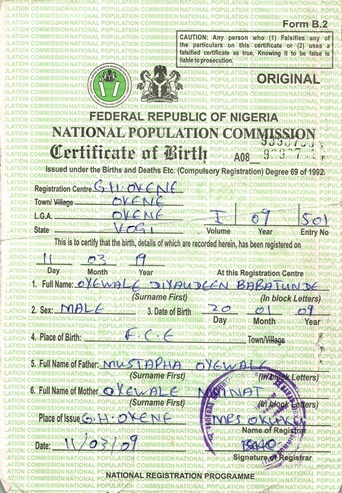 Form B.2
CAUTION: Any person who (1) Falsifies any of
the particulars on this certificate or (2) uses a
falsified certificate as true, Knowing it to be false is
liable to prosecution.
ORIGINAL
FEDERAL REPUBLIC OF NIGERIA
NATIONAL POPULATION COMMISSION
Certificate of Birth A08
Issued under the Births and Deaths Etc. (Compulsory Registration) Degree 69 of 1992.
Registration Centre G.H. OKENE
Town/Village OKENE
L.G.A. OKENE I 09 501
State KOGI Volume Year Entry No
This is to certify that the birth, details of which are recorded herein, has been registered on
11 03
Day Month Year At this Registration Centre
1. Full Name: OYEWALE JIYAUDEEN BABATUNDE
(Surname First) (In block Letters)
2. Sex: MALE 3. Date of Birth 20 01 09
Day Month Year
4. Place of Birth: F.C.E Town/Village
5. Full Name of Father: MUSTAPHA OYEWALE
(Surname First) (In block Letters)
6. Full Name of Mother OYEWALE
(Surname First) (In block Letters)
Place of Issue G.H. OKENE MRS
Name of Registrar
Date: 11/03/09
Signature of Registrar
NATIONAL REGISTRATION PROGRAMME